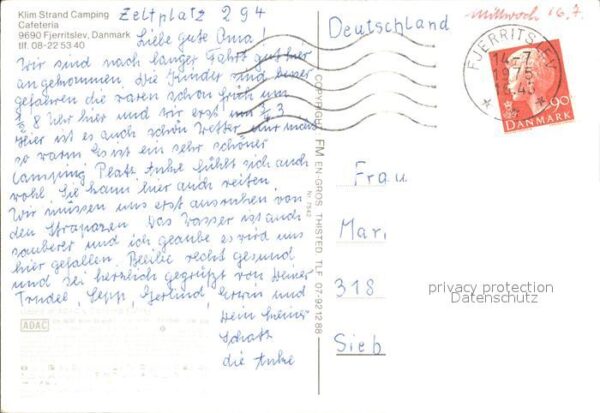 Klim Strand Camping
Cafeteria
9690 Fjerritslev, Danmark
tlf. 08-22 53 40
Zeltplatz 294
Liebe gute Oma!
Wir sind nach langer Fahrt gut hier
angekommen. Die Kinder sind
gefahren die waren schon früh um
1/2 8 Uhr hier und wir erst um 1/2 3
Hier ist es auch schön Wetter nur nicht
so warm. Es ist ein sehr schöner
Camping Platz. Anke fühlt sich auch
wohl. Sie kann hier auch reiten.
Wir müssen uns erst ausruhen von
den Strapazen. Das Wasser ist auch
sauberer und ich glaube es wird uns
hier gefallen. Bleibe recht gesund
und sei herzlich gegrüßt von Deiner
Trudee, Sepp, Gerlind, Erwin und
Dein kleiner
Schatz
die Anke
ADAC
COPYRIGHT FM EN-GROS, THISTED, TLF. 07-92 12 88
Deutschland
Mittwoch 16.7.
FJERRITSLEV
14-7
1975
DANMARK
90
Frau
Mar.
318
Sieb
privacy protection
Datenschutz